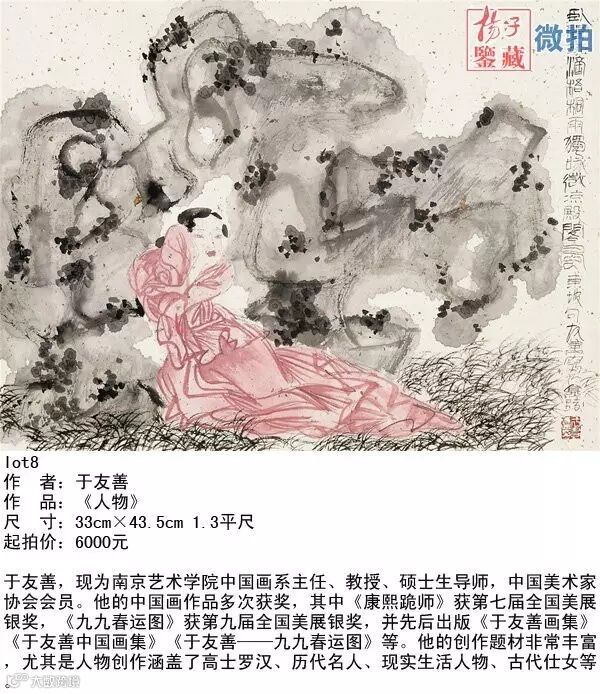 揚子
鑒藏
微拍
lot8
作  者：于友善
作  品：《人物》
尺  寸：33cm×43.5cm 1.3平尺
起拍价：6000元
于友善，现为南京艺术学院中国画系主任、教授、硕士生导师，中国美术家
协会会员。他的中国画作品多次获奖，其中《康熙跪师》获第七届全国美展
银奖，《九九春运图》获第九届全国美展银奖，并先后出版《于友善画集》
《于友善中国画集》《于友善——九九春运图》等。他的创作题材非常丰富
，尤其是人物创作涵盖了高士罗汉、历代名人、现实生活人物、古代仕女等
。
大数跨境